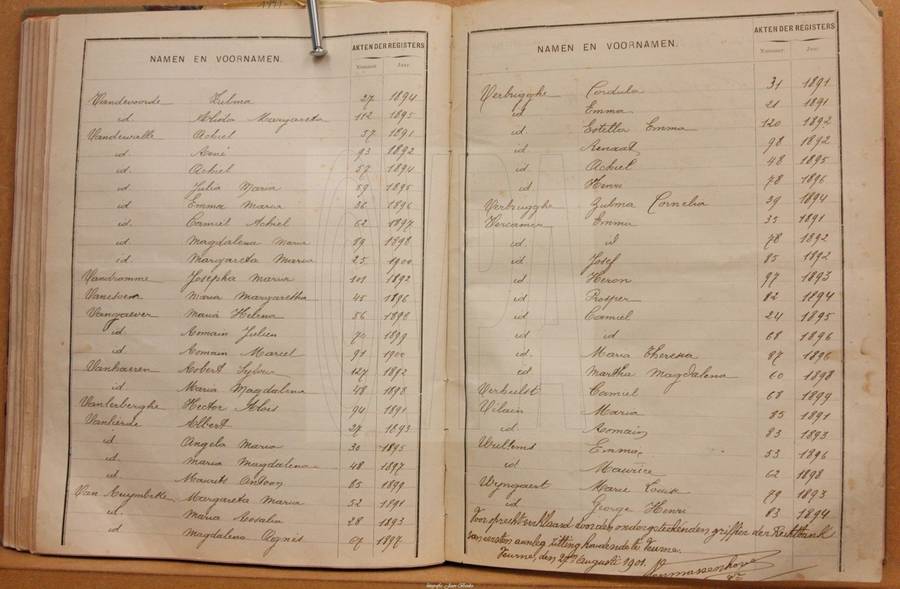 NAMEN EN VOORNAMEN.
AKTEN DER REGISTERS
Nummer Jaar
Vandevoorde Zulma 27 1894
id. Alida Margareta 112 1895
Vandewalle Achiel 57 1891
id. René 93 1892
id. Achiel 57 1894
id. Julia Maria 59 1895
id. Emma Maria 26 1896
id. Camiel Achiel 62 1897
id. Magdalena Maria 89 1898
id. Margareta Maria 25 1900
Vandromme Josepha Maria 101 1892
Maria Margaretha 45 1896
Vangraever Maria Helena 56 1898
id. Romain Julien 74 1899
id. Romain Marcel 91 1900
Vanhaeren Robert 127 1892
id. Maria Magdalena 48 1898
Vanlerberghe Hector Aloïs 94 1891
Albert 27 1893
id. Angela Maria 30 1895
id. Maria Magdalena 48 1897
id. Maurits Antoon 85 1899
Van Margareta Maria 52 1891
id. Maria Rosalia 28 1893
id. Magdalena Agnès 1897
NAMEN EN VOORNAMEN.
AKTEN DER REGISTERS
Nummer Jaar
Verbrugghe Cordula 31 1891
id Emma 21 1891
id Estella Emma 120 1892
id Renaat 98 1892
id Achiel 48 1895
id Henri 78 1896
Verbrugghe Zulma Cornelia 29 1894
Vercamer Emma 35 1891
id. id 78 1892
id. Josef 85 1892
id Heron 97 1893
id Prosper 82 1894
id Camiel 24 1895
id id 68 1896
id. Maria Theresia 87 1896
id Martha Magdalena 60 1898
Verhulst Camiel 68 1899
Vilain Maria 85 1891
id. Romain 83 1893
Willems Emma 53 1896
id Maurice 62 1898
Wyngaert Marie Louise 79 1893
id George Henri 83 1894
Voor echt verklaard door den ondergeteekenden griffier der Rechtbank
van eersten aanleg zitting houdende te Veurne.
Veurne, den 27n Augusti 1901.